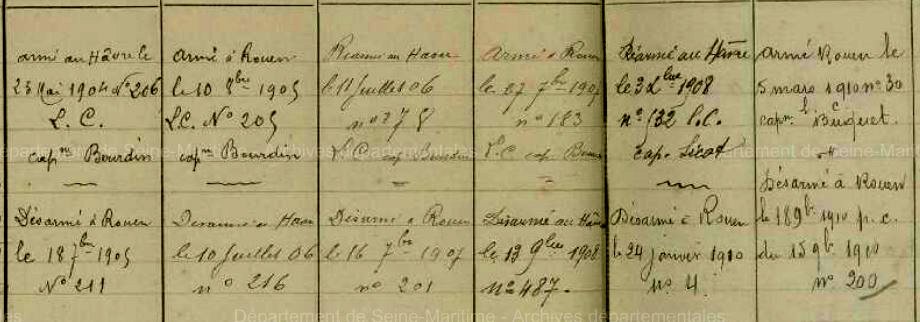 armé au Hâvre le
25 Mai 1904 N° 206
L. C.
cap^ne Bourdin
Désarmé à Rouen
le 18 7^bre 1905
N° 211
Armé à Rouen
le 10 8^bre 1905
L.C. N° 205
cap^ne Bourdin
Désarmé au Havre
le 10 Juillet 06
n° 216
Réarmé au Havre
le 11 Juillet 06
n° 278
L.C cap Bourdin
Désarmé à Rouen
le 16 7^bre 1907
n° 201
Armé à Rouen
le 27 7^bre 1907
n° 183
L.C cap
Désarmé au Hâvre
le 13 9^bre 1908
n° 487.
Réarmé au Hâvre
le 3 1908
n° 132 L.C.
Cap.
Désarmé à Rouen
le 24 janvier 1910
n° 4
Armé Rouen le
5 mars 1910 n° 30
L C
cap^ne Buquet.
Désarmé à Rouen
le 18 9^b 1910 p.c.
du 15 9^b 1910
n° 200
Archives départementales de Seine-Maritime
Département de Seine-Maritime - Archives départementales